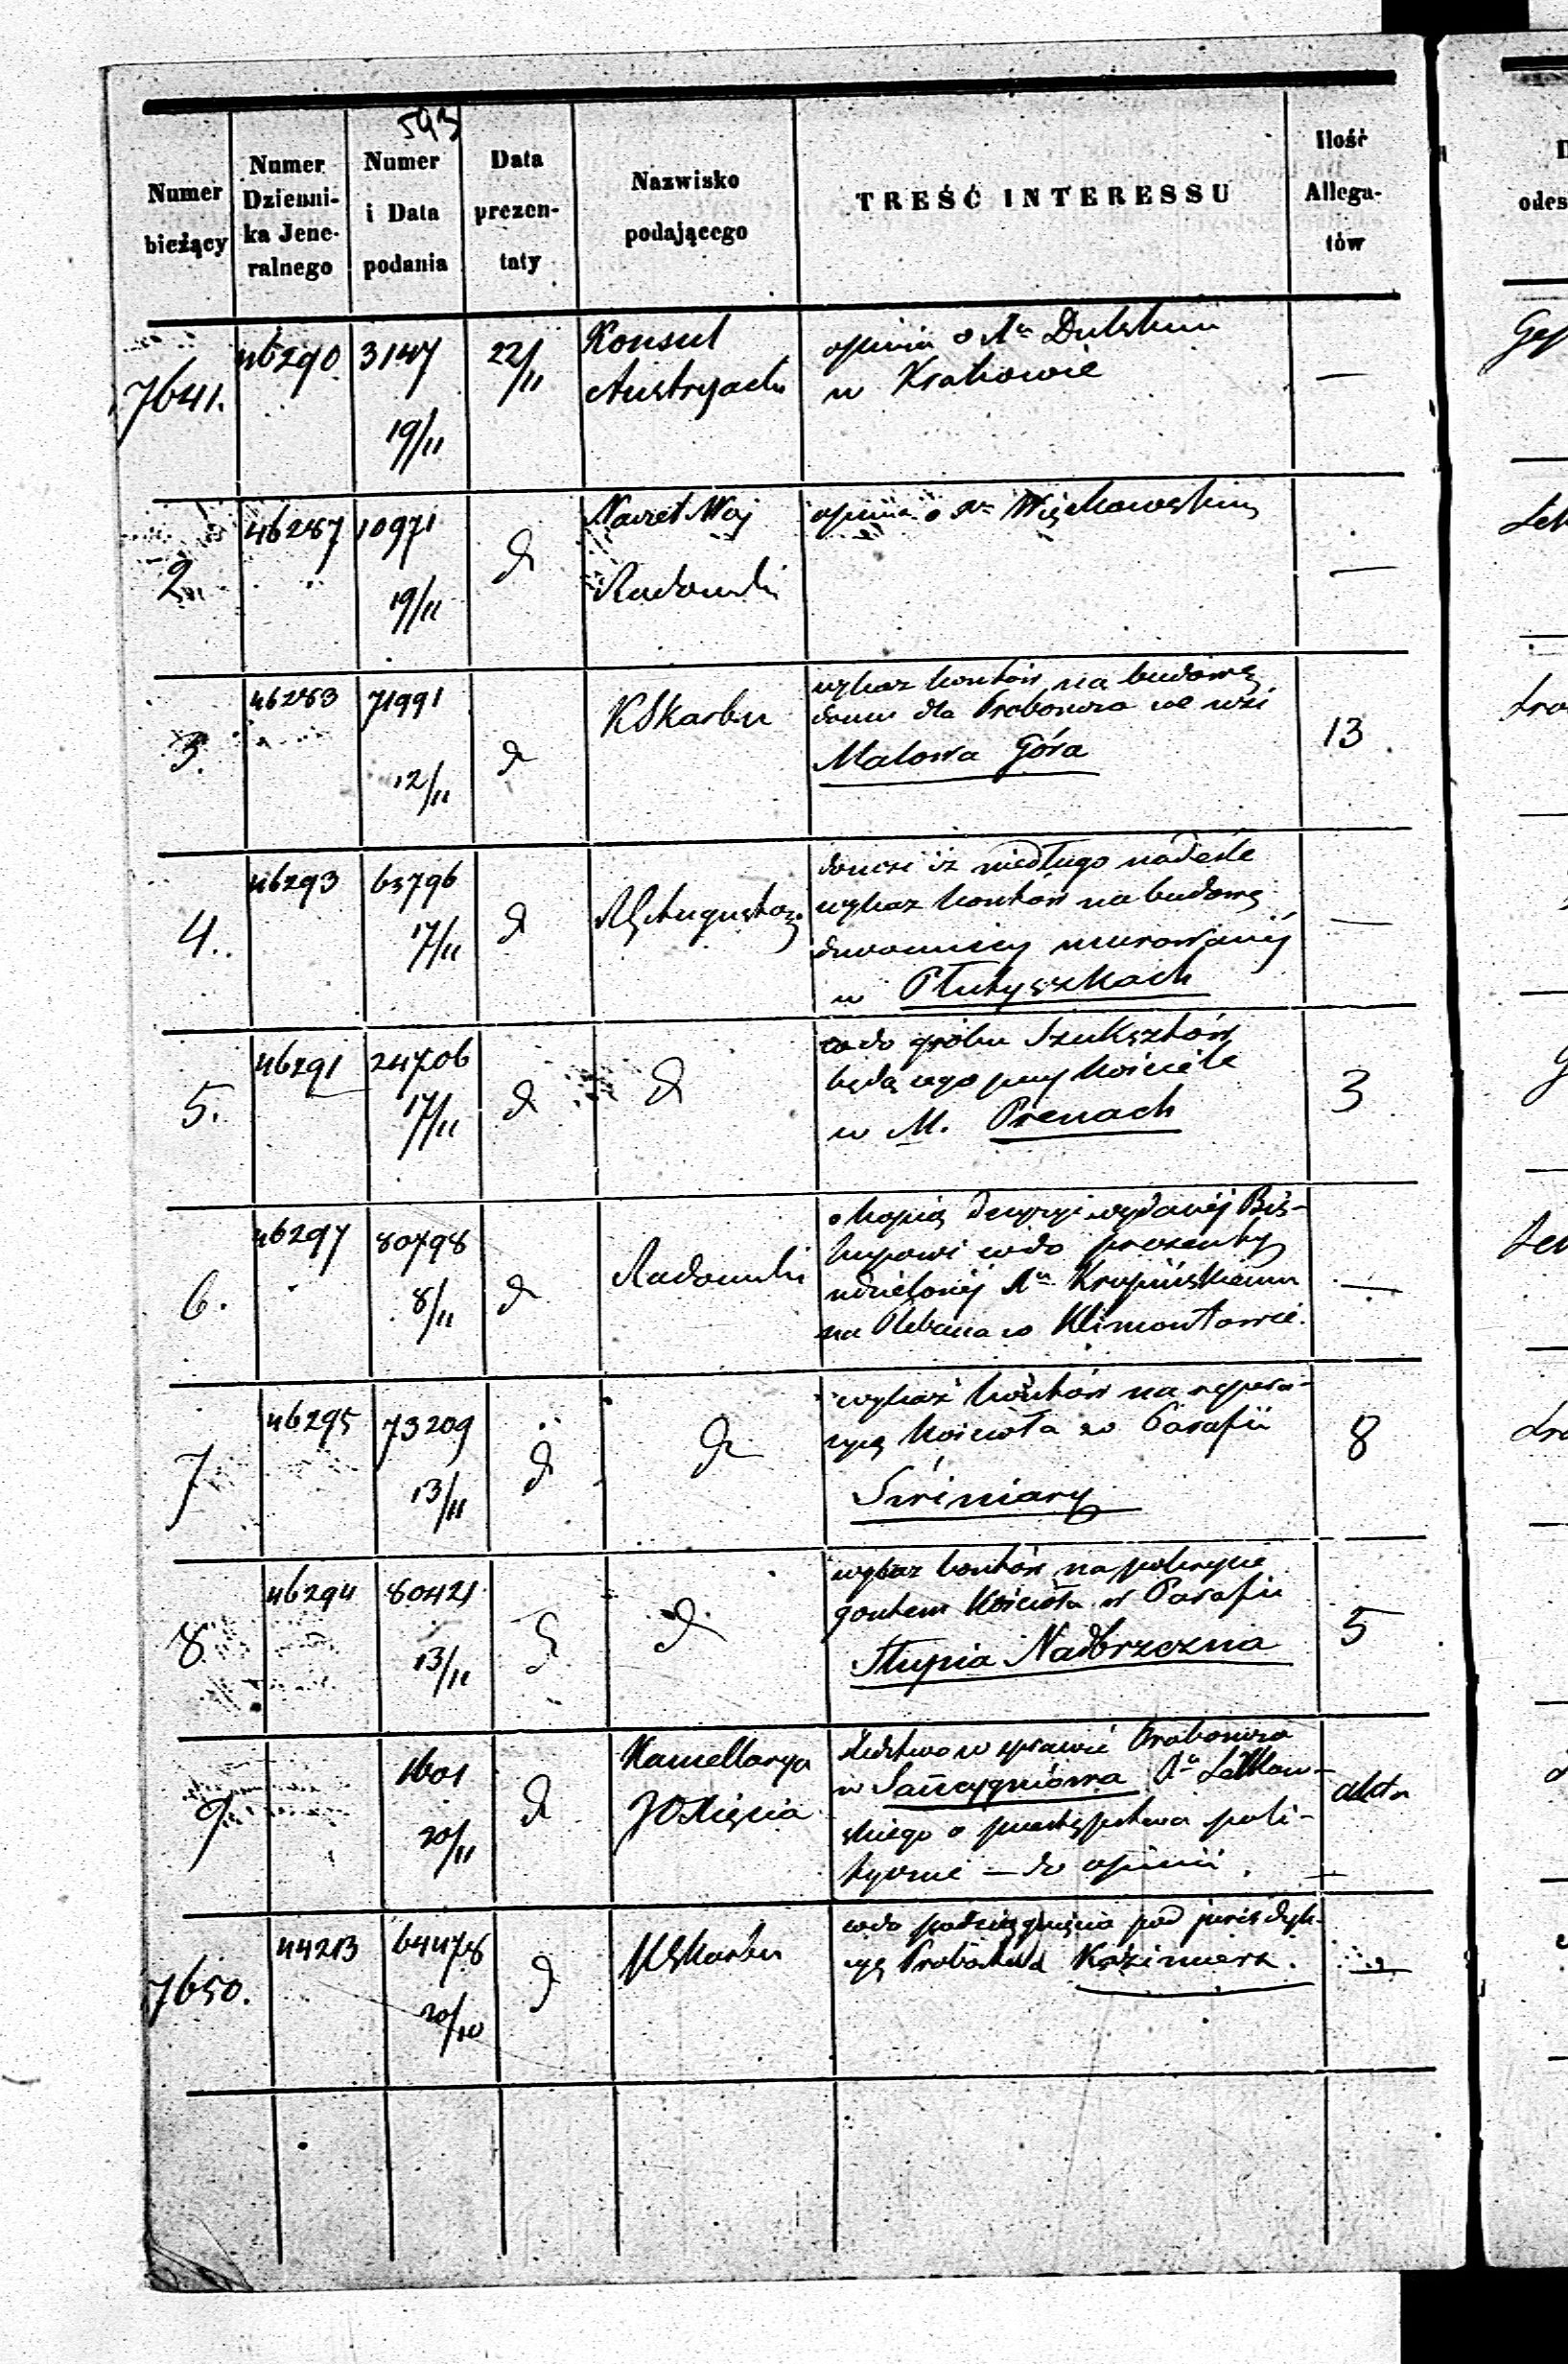 593
Numer bieżący
Numer Dzienni- ka Jene- ralnego
Numer i Data podania
Data prezen- taty
Nazwisko podającego
TREŚĆ INTERESSU
Ilość Allega- tów
7641.
46290
3147
19/11
22/11
Konsul
Austryacki
opinia o Xu Dulskim
w Krakowie
—
2
46287
10971
19/11
d
Naczel Woj
Radomski
opinia o Xu Więckowskim
—
3.
46283
71991
12/11
d
KSkarbu
wykaz kosztów na budowę
domu dla Proboszcza we wsi
Malowa Góra
13
4.
46293
65796
17/11
d
RgAugustow
donosi iż niedługo nadeśle
wykaz kosztów na budowę
dzwonnicy murowanéj
w Plutyszkach
—
5.
46291
24706
17/11
d
d
co do grobu Szuksztów
będącego przy kościele
w M. Prenach
3
6.
46297
80798
8/11
d
Radomski
o kopią decyzyi wydanéj Bis-
kupowi co do prezenty
udzielonéj Xu Krupińskiemu
na Plebana w Klimontowie.
—
7
46295
73209
13/11
d
d
wykaz kosztów na repera-
cyą kościoła w Parafii
Świniary
8
8
46294
80421
13/11
d
d
wykaz kosztów na pokrycie
gontem kościoła w Parafii
Słupia Nadbrzezna
5
9
1601
20/11
d
Kancellarya
JOXięcia
śledztwo w sprawie Proboszcza
w Sancygniowa Xa
skiego o przestępstwa poli-
tyczne — do opinii
akta
7650.
44213
64478
20/10
d
KSkarbu
co do podciągnięcia pod jurisdyk-
cyę Probostwa Kazimierz.
—